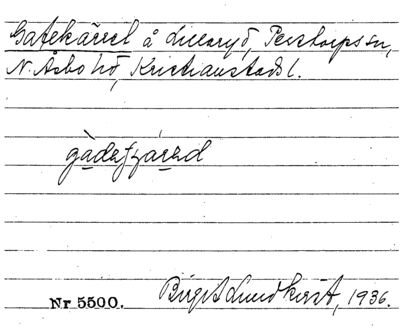 Gatekärret å Lillaryd, Perstorps sn,
N. Åsbo hd, Kristianstads l.
Nr 5500. Birgit Lundkvist, 1936.